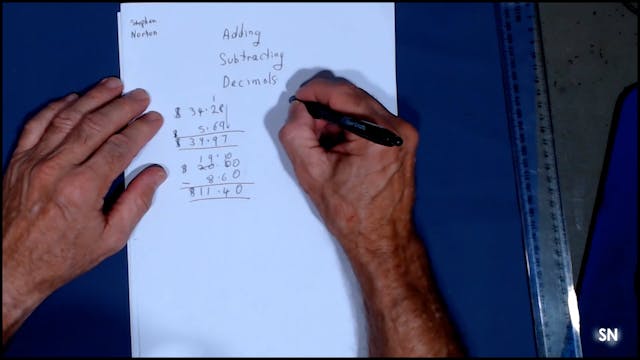 Stephen
Norton
Adding
Subtracting
Decimals
1
$ 34.28
$ 5.69
$ 39.97
19.10
$ 20.00
- 8.60
$11.40
SN